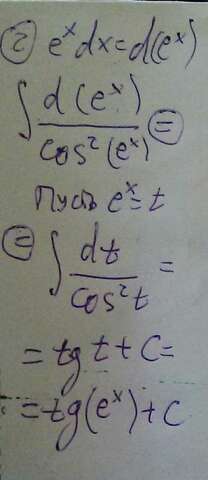 ② eˣdx=d(eˣ)
∫ d(eˣ)/cos²(eˣ) ⊜
Пусть eˣ=t
⊜ ∫ dt/cos²t =
= tg t + C =
= tg(eˣ)+C